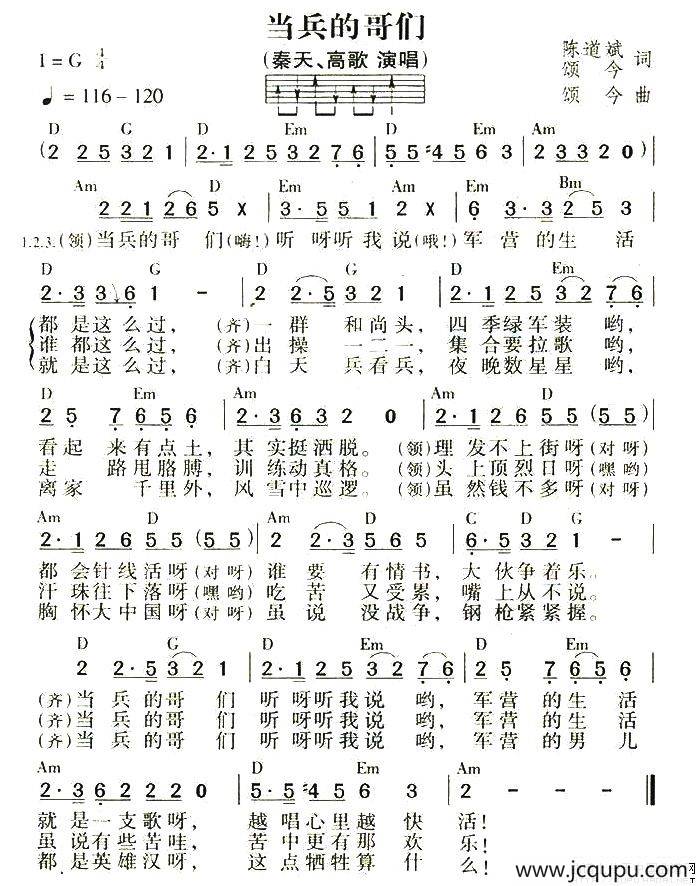 当兵的哥们
1=G 4/4
(秦天、高歌 演唱)
陈道斌 词
颂今
♩=116-120
颂今 曲
D G D Em D Em Am
(2 2 5 3 2 1 | 2·1 2 5 3 2 7 6 | 5·5 #4 5 6 3 | 2 3 3 2 0) |
Am D Em Am Em Bm
2 2 1 2 6 5 X | 3·5 5 1 2 X | 6 3·3 2 5 3 |
1.2.3.(领)当兵的哥 们(嗨!)听 呀听我说(哦!)军 营的生 活
D G D G D Em
2·3 3 6 1 - | 2 2 5 3 2 1 | 2·1 2 5 3 2 7 6 |
都 是这么过, (齐)一 群 和尚头, 四 季绿军装 哟,
谁 都这么过, (齐)出 操 一二一, 集 合要拉歌 哟,
就 是这么过, (齐)白 天 兵看兵, 夜 晚数星星 哟,
D Em Am Am D
2 5 7 6 5 6 | 2·3 6 3 2 0 | 2·1 2 6 5 5 (5 5) |
看起 来有点土, 其 实挺洒脱。 (领)理 发不上街呀(对呀)
走 路甩胳膊, 训 练动真格。 (领)头 上顶烈日呀(嘿哟)
离家 千里外, 风 雪中巡逻。 (领)虽 然钱不多呀(对呀)
Am D Am D C D G
2·1 2 6 5 5 (5 5) | 2 2·3 5 6 5 | 6·5 3 2 1 - |
都 会针线活呀(对呀)谁 要 有情书, 大 伙争着乐。
汗 珠往下落呀(嘿哟)吃 苦 又受累, 嘴 上从不说。
胸 怀大中国呀(对呀)虽 说 没战争, 钢 枪紧紧握。
D G D Em D Em
2 2·5 3 2 1 | 2·1 2 5 3 2 7 6 | 2 5 7 6 5 6 |
(齐)当 兵的哥 们 听 呀听我说 哟, 军 营的生活
(齐)当 兵的哥 们 听 呀听我说 哟, 军 营的生活
(齐)当 兵的哥 们 听 呀听我说 哟, 军 营的男儿
Am D Em Am
2·3 6 2 2 2 0 | 5·5 #4 5 6 3 | 2 - - - ‖
就 是一支歌呀, 越 唱心里越 快 活!
虽 说有些苦哇, 苦 中更有那 欢 乐!
都 是英雄汉呀, 这 点牺牲算 什 么!
www.jcqupu.com